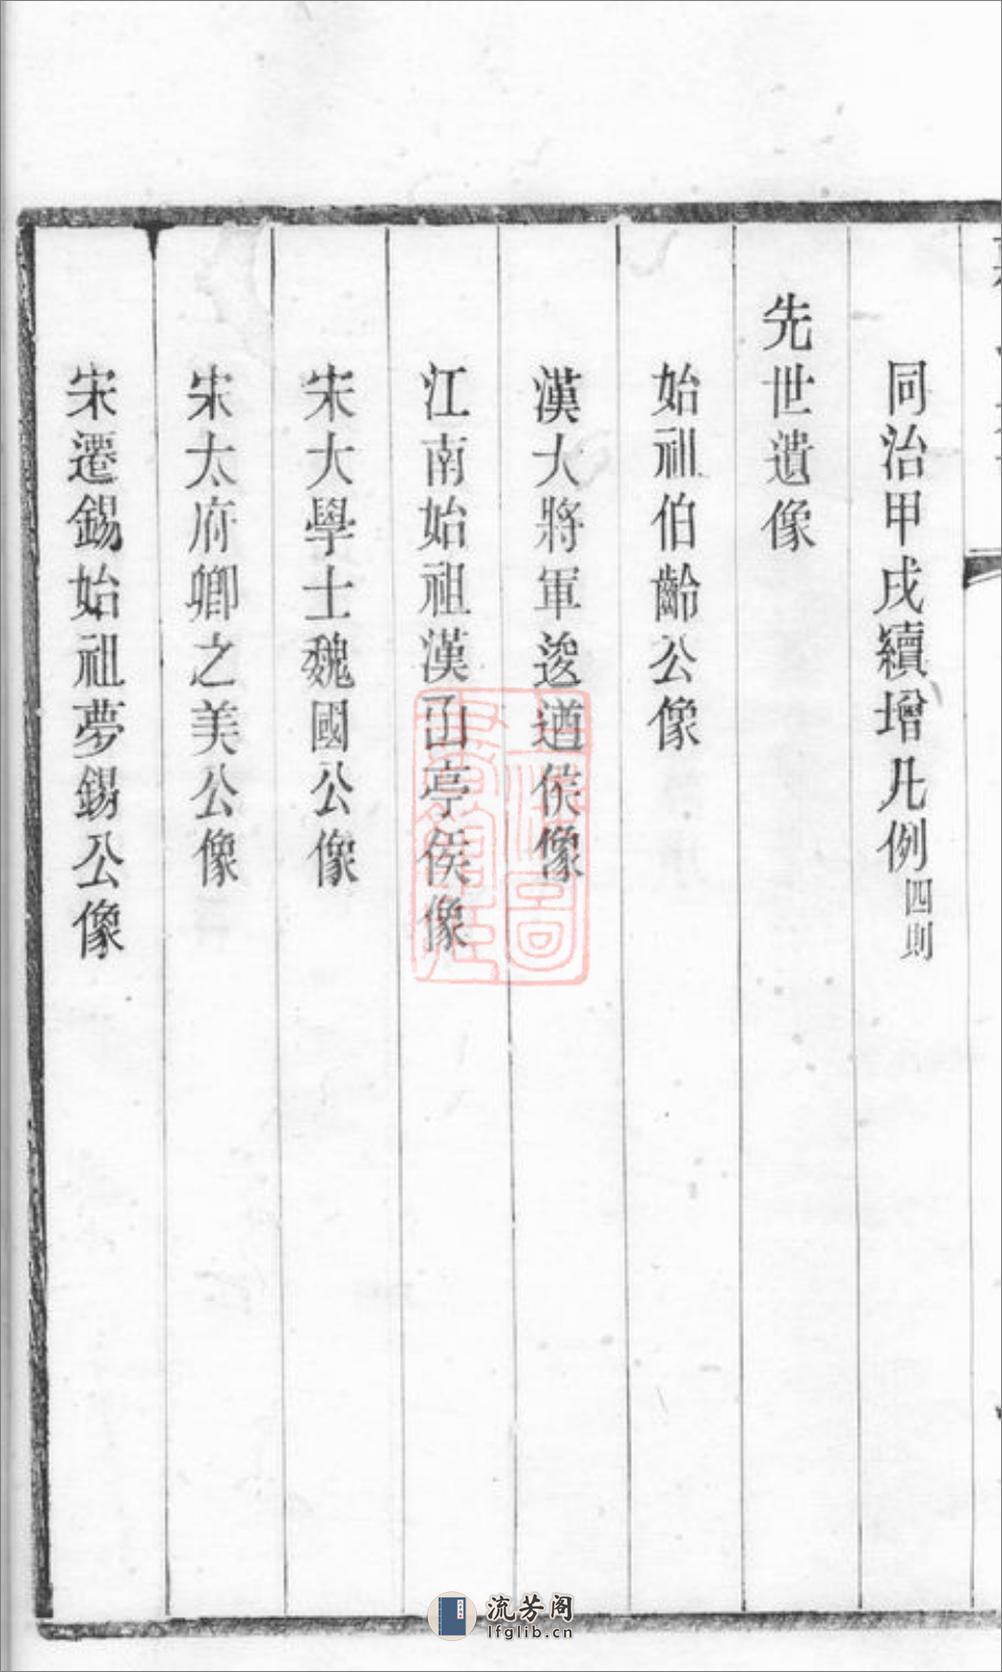 同治甲戌續增凡例四則
先世遺像
始祖伯齡公像
漢大將軍逡遒侯像
江南始祖漢函亭侯像
宋大學士魏國公像
宋太府卿之美公像
宋遷錫始祖夢錫公像
上海圖書館藏
流芳阁
lfglib.cn